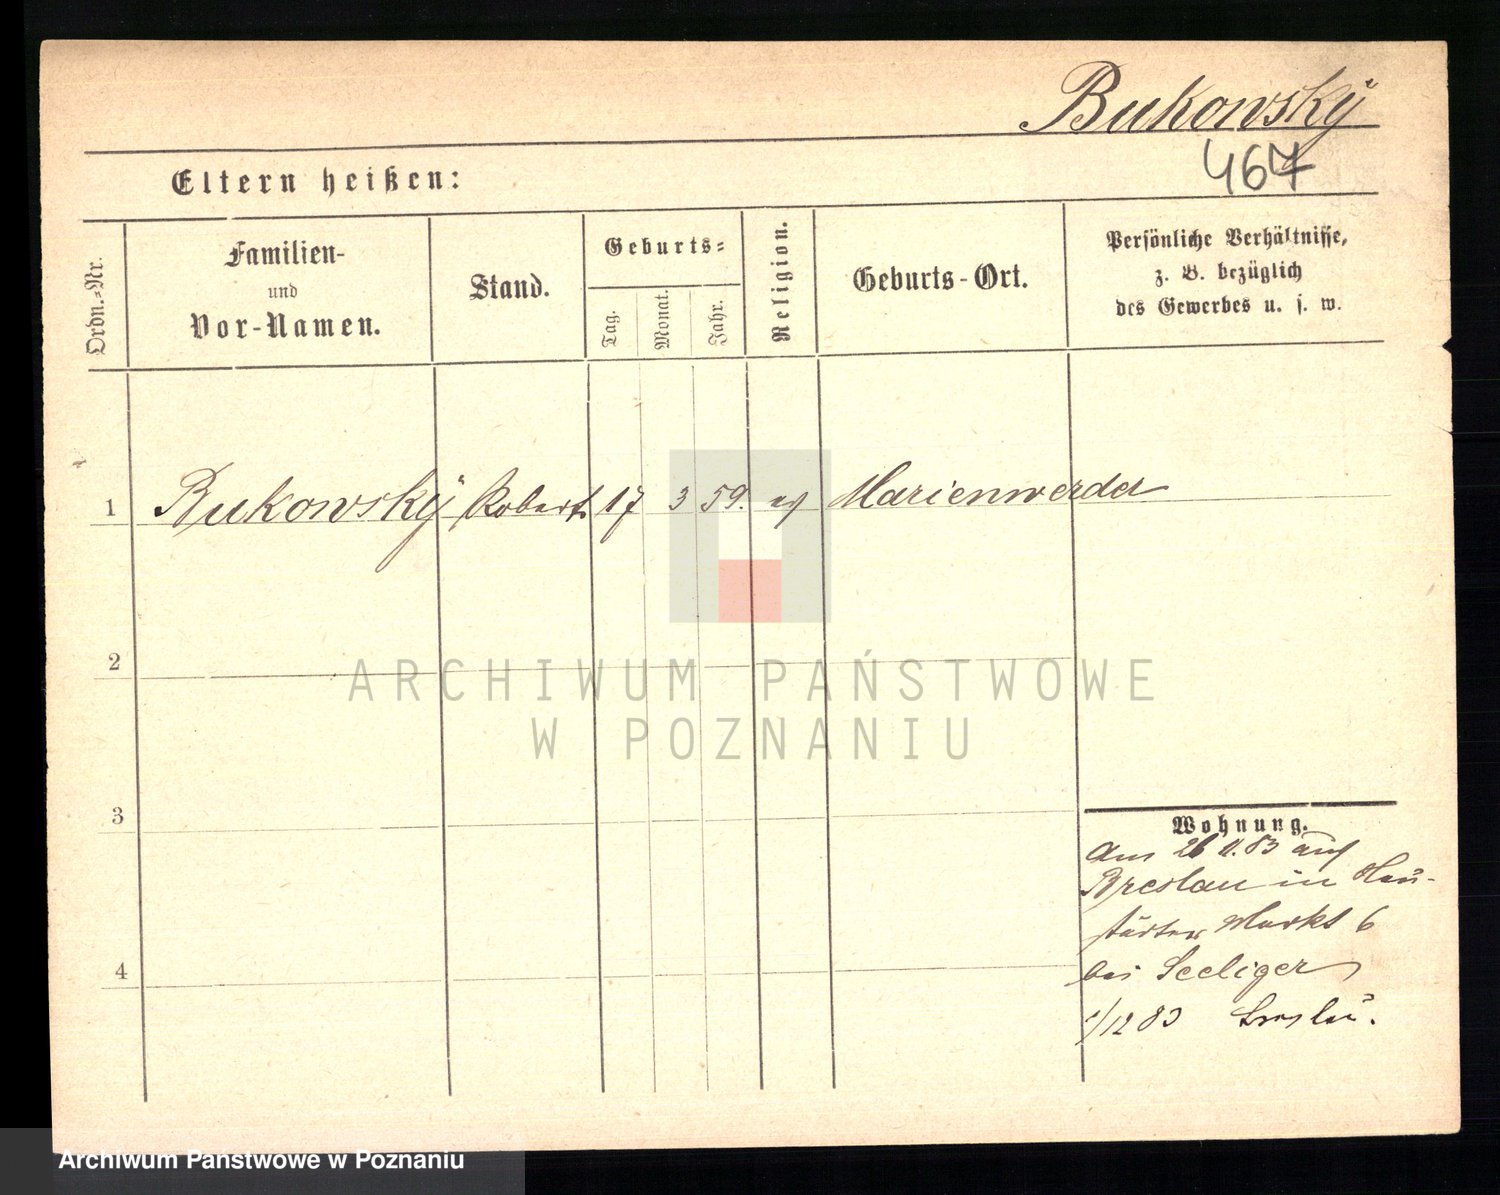 Bukowskÿ
467
Eltern heißen:
Ordn.-Nr.
Familien-
und
Vor-Namen.
Stand.
Geburts-
Tag.
Monat.
Jahr.
Religion.
Geburts-Ort.
Persönliche Verhältnisse,
z. B. bezüglich
des Gewerbes u. s. w.
1 Bukowskÿ Robert 17 3 59. ev Marienwerder
2
3
4
Wohnung.
Am 26 11. 83 auf
Breslau in Neu-
städter Markt 6
bei Seeliger
1/12 83 Breslau.
ARCHIWUM PAŃSTWOWE
W POZNANIU
Archiwum Państwowe w Poznaniu